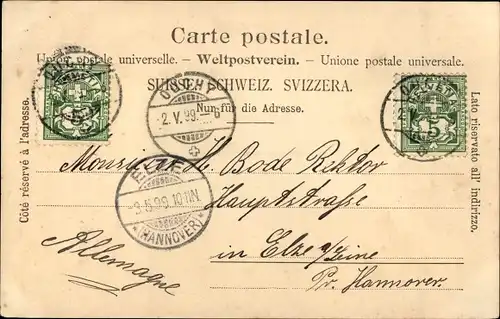 Carte postale.
Union postale universelle. - Weltpostverein. - Unione postale universale.
SUISSE. SCHWEIZ. SVIZZERA.
Nur für die Adresse.
Côté réservé à l'adresse.
Lato riservato all' indirizzo.
5
5
2. V. 99. - 6
ELZE
3 5 99 10-11N
(HANNOVER)
Monsieur H. Bode Rektor
Hauptstraße
in Elze a/Leine
Pr. Hannover.
Allemagne